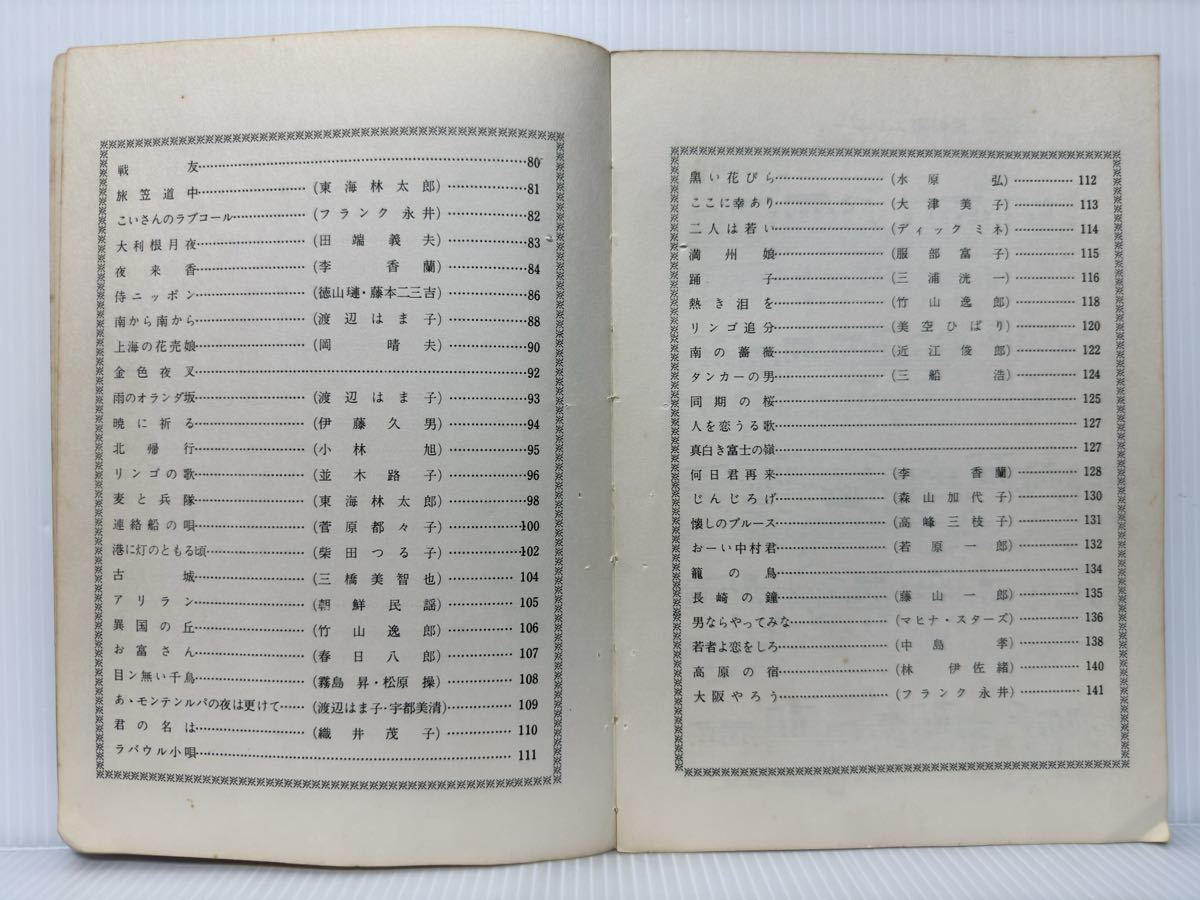 戦友 80
旅笠道中 (東海林太郎) 81
こいさんのラブコール (フランク永井) 82
大利根月夜 (田端義夫) 83
夜来香 (李香蘭) 84
侍ニッポン (徳山璉・藤本二三吉) 86
南から南から (渡辺はま子) 88
上海の花売娘 (岡晴夫) 90
金色夜叉 92
雨のオランダ坂 (渡辺はま子) 93
暁に祈る (伊藤久男) 94
北帰行 (小林旭) 95
リンゴの歌 (並木路子) 96
麦と兵隊 (東海林太郎) 98
連絡船の唄 (菅原都々子) 100
港に灯のともる頃 (柴田つる子) 102
古城 (三橋美智也) 104
アリラン (朝鮮民謡) 105
異国の丘 (竹山逸郎) 106
お富さん (春日八郎) 107
目ン無い千鳥 (霧島昇・松原操) 108
あゝモンテンルパの夜は更けて (渡辺はま子・宇都美清) 109
君の名は (織井茂子) 110
ラバウル小唄 111
黒い花びら (水原弘) 112
ここに幸あり (大津美子) 113
二人は若い (ディックミネ) 114
満州娘 (服部富子) 115
踊子 (三浦洸一) 116
熱き泪を (竹山逸郎) 118
リンゴ追分 (美空ひばり) 120
南の薔薇 (近江俊郎) 122
タンカーの男 (三船浩) 124
同期の桜 125
人を恋うる歌 127
真白き富士の嶺 127
何日君再来 (李香蘭) 128
じんじろげ (森山加代子) 130
懐しのブルース (高峰三枝子) 131
おーい中村君 (若原一郎) 132
籠の鳥 134
長崎の鐘 (藤山一郎) 135
男ならやってみな (マヒナ・スターズ) 136
若者よ恋をしろ (中島孝) 138
高原の宿 (林伊佐緒) 140
大阪やろう (フランク永井) 141